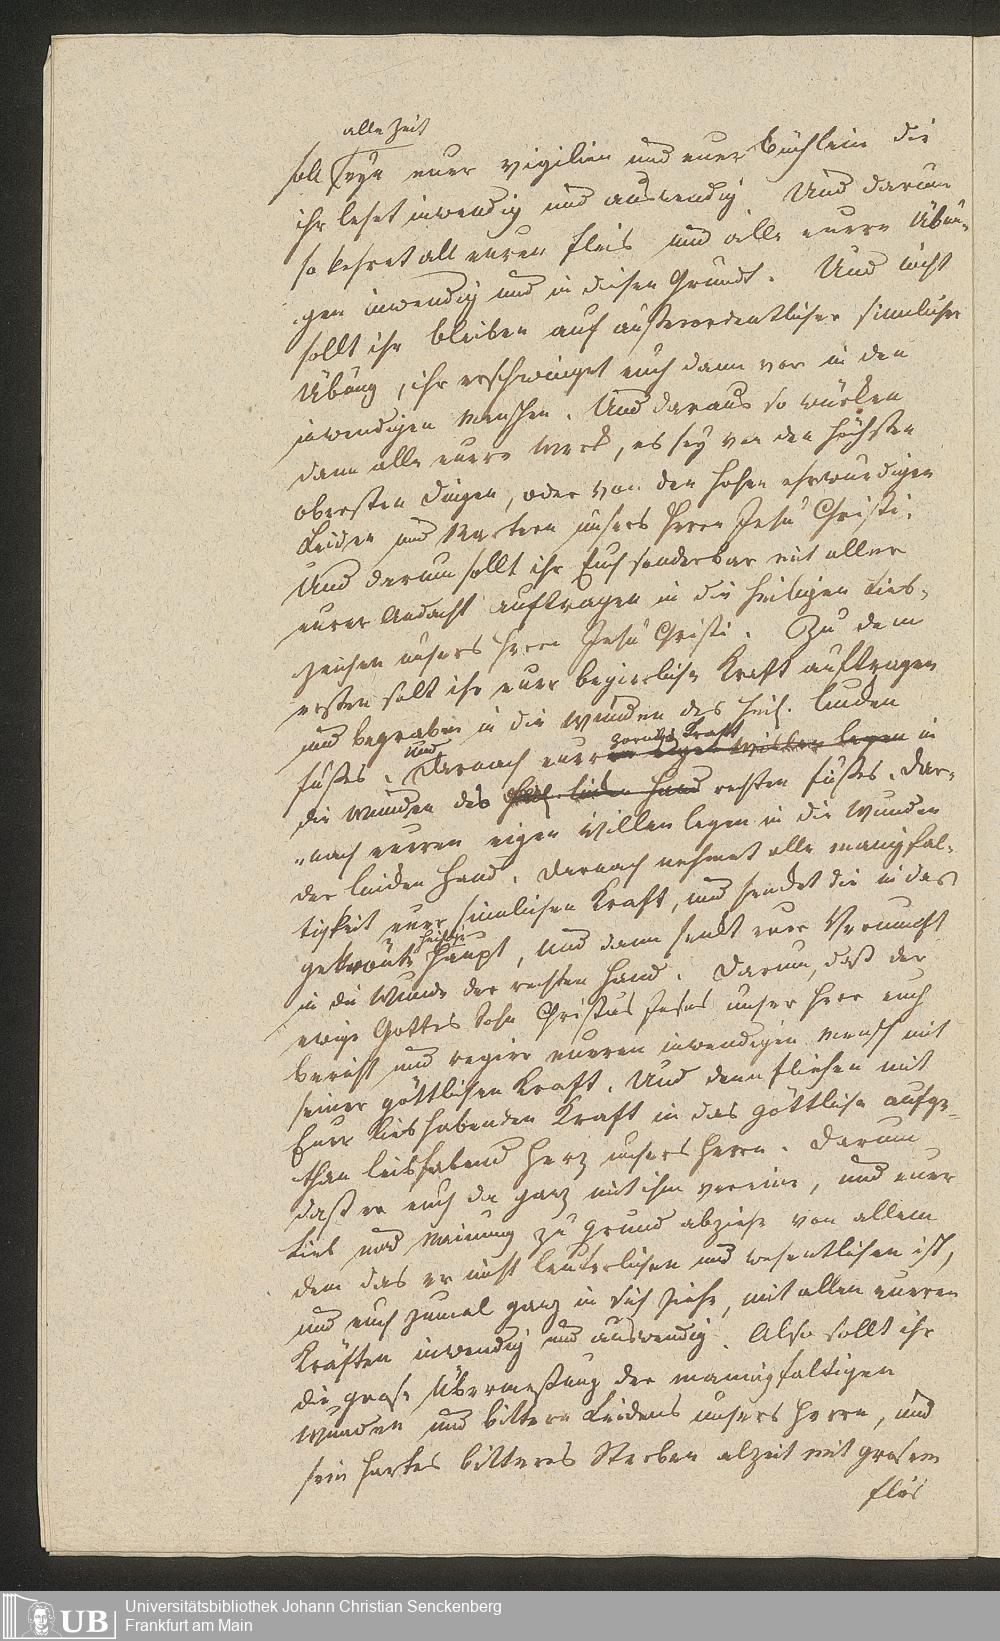 alle Zeit
soll seyn euer vigilien und euer Büchlein die
ihr leset inwendig und auswendig. Und darum
so kehret all euren fleis und alle eurre Übun-
gen inwendig und in diesen Grundt. Und nicht
sollt ihr bleiben auf außerordentlicher sinnlicher
Übung, ihr erschwinget euch dann vor in den
inwendigen Menschen. Und daraus so würken
dann alle euere Werk, es sey von den höchsten
obersten Dingen, oder von den hohen ehrwürdigen
Leiden und Martern unsers Herrn Jesu Christi.
Und darum sollt ihr Euch sonderbar mit aller
eurer Andacht auftragen in die heiligen Lieb-
zeichen unsers Herrn Jesu Christi. Zu dem
ersten solt ihr euer begierliche Kraft auftragen
und begraben in die Wunden des heil. linken
fußes. Und Darnach euer zornige Kraft in
die Wunden des rechten fußes. Dar-
nach eueren eigen Willen legen in die Wunden
der linken Hand. Darnach nehmet alle manigfal-
tigkeit euer sinnlichen Kraft, und sendet die in das
gekrönte heilige Haupt, und dann senkt euer Vernunft
in die Wunde der rechten Hand. Darum, daß der
ewige Gottes Sohn Christus Jesus unser Herr euch
bericht und regire eueren inwendigen Mensch mit
seiner göttlichen Kraft. Und dann fliehen mit
Eurr liebhabenden Kraft in das göttliche aufge-
than liebhabend Herz unsers Herrn. Darum
daß er euch da ganz mit ihm vereine, und euer
Lieb und Meinung zu Grund abziehe von allem
dem das er nicht lauterlichen und wesentlichen ist,
und euch zumal ganz in sich ziehe, mit allen eueren
Kräften inwendig und auswendig. Also sollt ihr
die grose Übermeßung der manigfaltigen
Wunden und bittern Leidens unsers Herrn, und
sein hartes bitteres Sterben alzeit mit grosem
fleis
UB Universitätsbibliothek Johann Christian Senckenberg
Frankfurt am Main